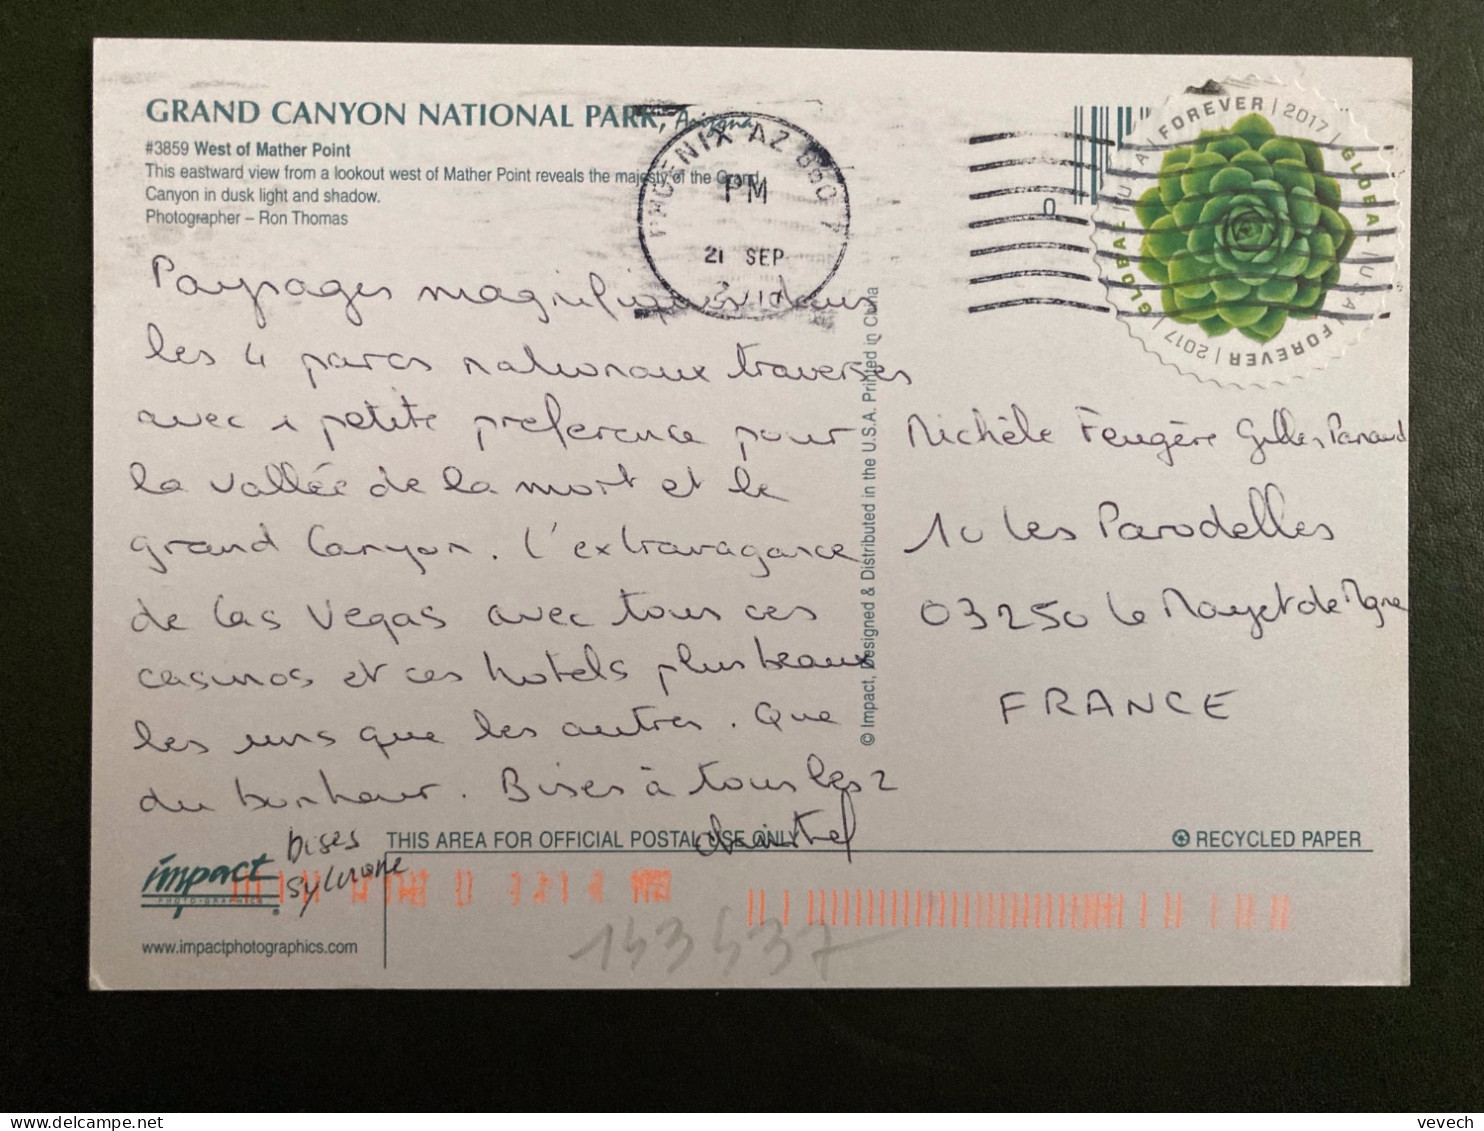 GRAND CANYON NATIONAL PARK, Arizona
#3859 West of Mather Point
This eastward view from a lookout west of Mather Point reveals the majesty of the Grand
Canyon in dusk light and shadow.
Photographer – Ron Thomas
PHOENIX AZ 850
PM
21 SEP
FOREVER | 2017 | GLOBAL | USA | FOREVER | 2017 | GLOBAL | USA |
0
Paysages magnifiques dans
les 4 parcs nationaux traversés
avec 1 petite preference pour
la vallée de la mort et le
grand Canyon. L'extravagance
de Las Vegas avec tous ces
casinos et ces hotels plus beaux
les uns que les autres. Que
du bonheur. Bises à tous les 2
Christel
bises
Sylviane
Michèle Feugère Gilles Panaud
10 Les Parodelles
03250 Le Mayet de Mgne
FRANCE
© Impact, Designed & Distributed in the U.S.A. Printed in China
THIS AREA FOR OFFICIAL POSTAL USE ONLY
RECYCLED PAPER
impact
PHOTO-GRAPHICS
®
www.impactphotographics.com
143437
vevech